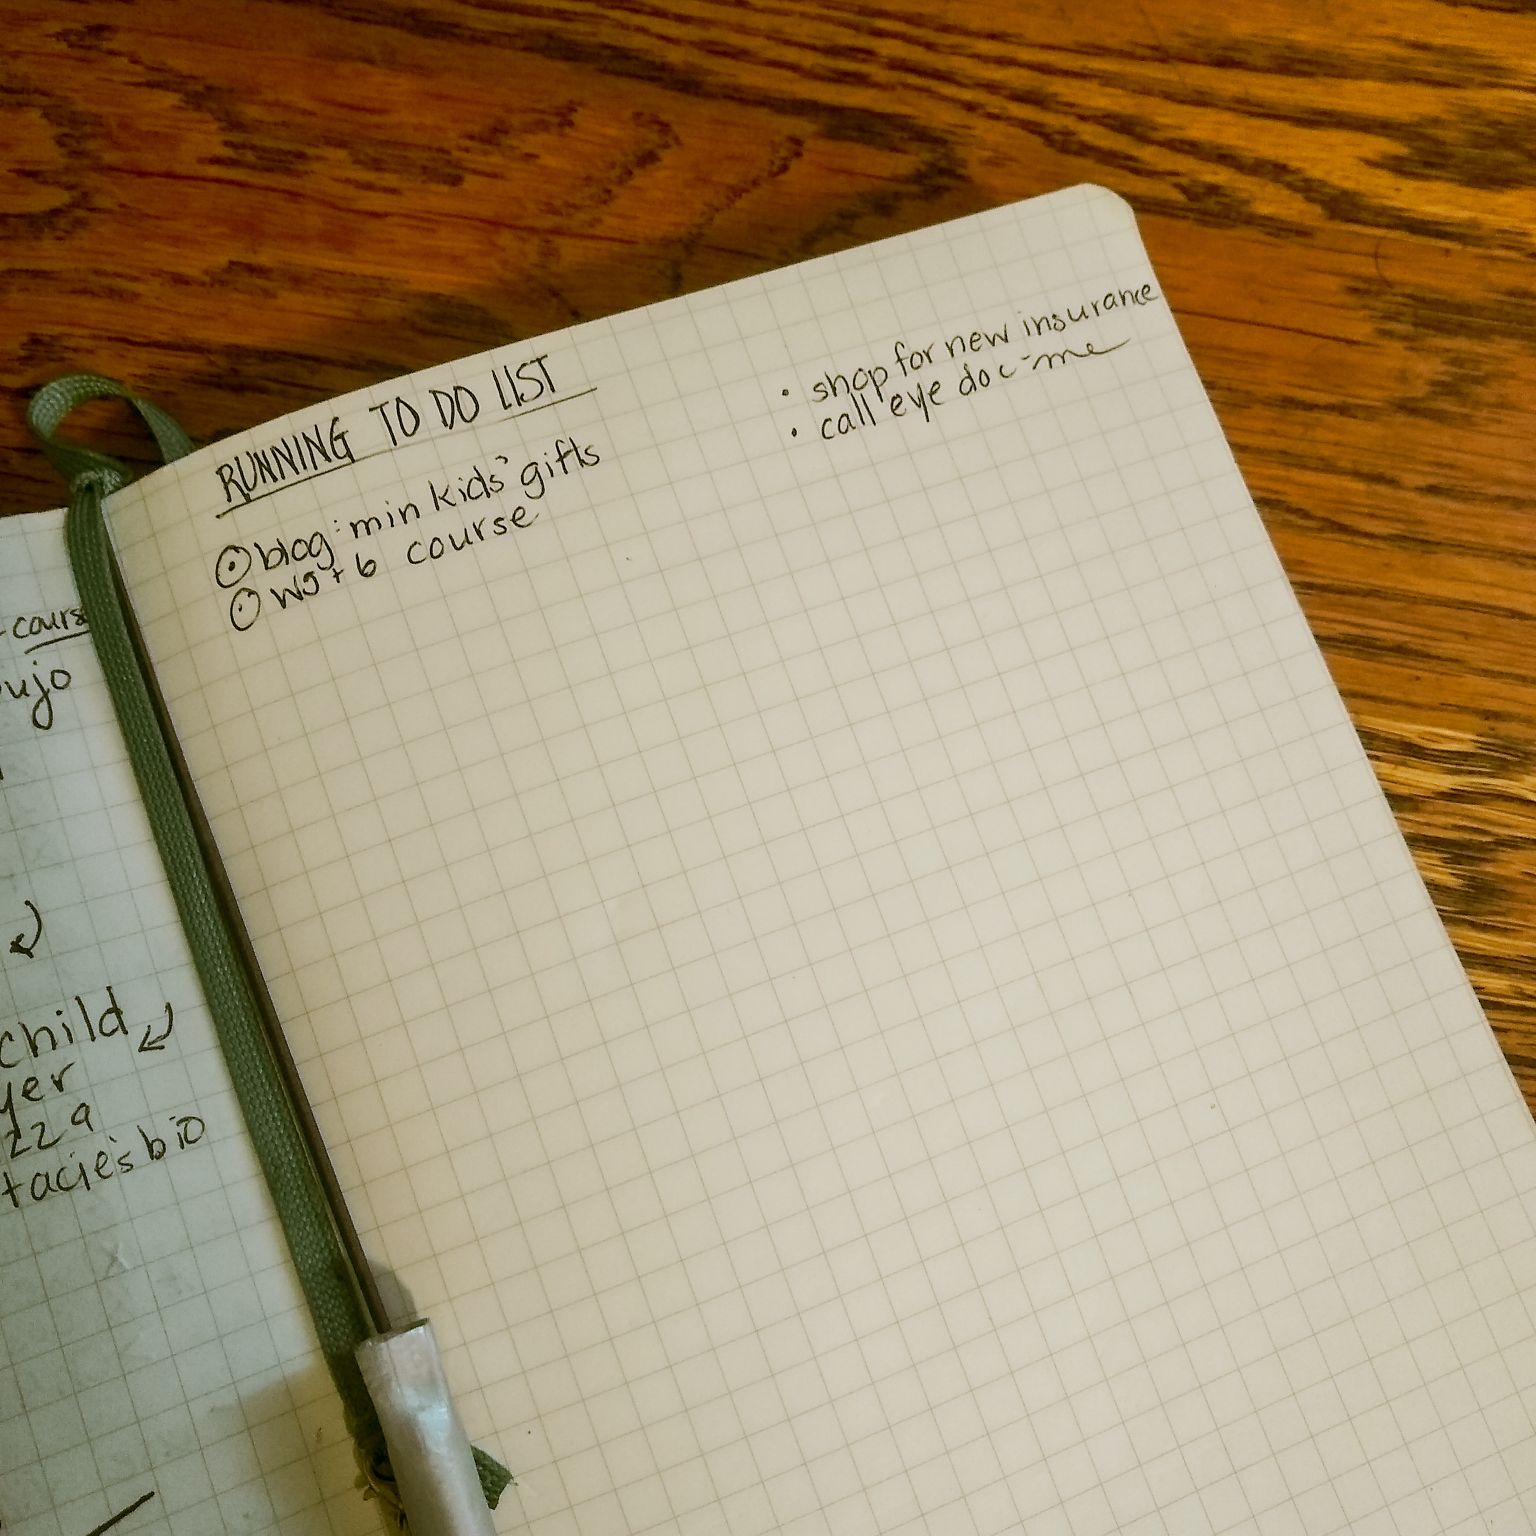 - course
ujo
child
yer
zza
tacie's bio
RUNNING TO DO LIST
blog: min kids' gifts
WS + b course
• shop for new insurance
• call eye doc - me